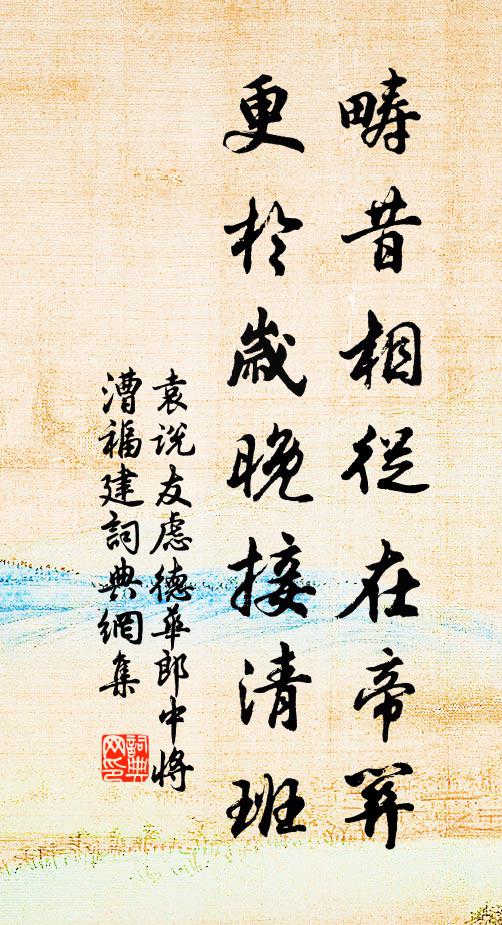 疇昔相從在帝關
更於歲晚接清班
袁說友慮德華郎中將
漕福建詞典網集
詞典
网印